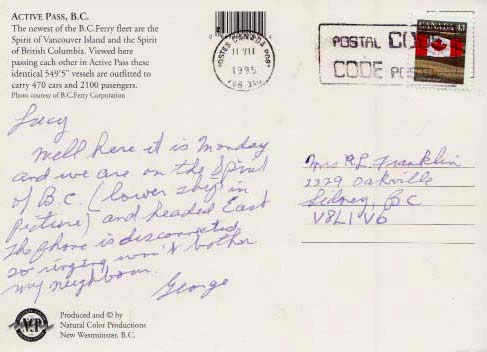 ACTIVE PASS, B.C.
The newest of the B.C.Ferry fleet are the
Spirit of Vancouver Island and the Spirit
of British Columbia. Viewed here
passing each other in Active Pass these
identical 549'5" vessels are outfitted to
carry 470 cars and 2100 pasengers.
Photo courtesy of B.C.Ferry Corporation
Lucy
Well here it is Monday
and we are on the Spirit
of B.C. (lower ship in
picture) and headed East
The phone is disconnected
so ringing won't bother
my neighbour.
George
Produced and © by
Natural Color Productions
New Westminster, B.C.
NCP
POSTES CANADA POST
11 VII
1995
POSTAL CODE
CODE POSTAL
CANADA 43
Mrs R.L. Franklin
2329 Oakville
Sidney, B.C
V8L1V6